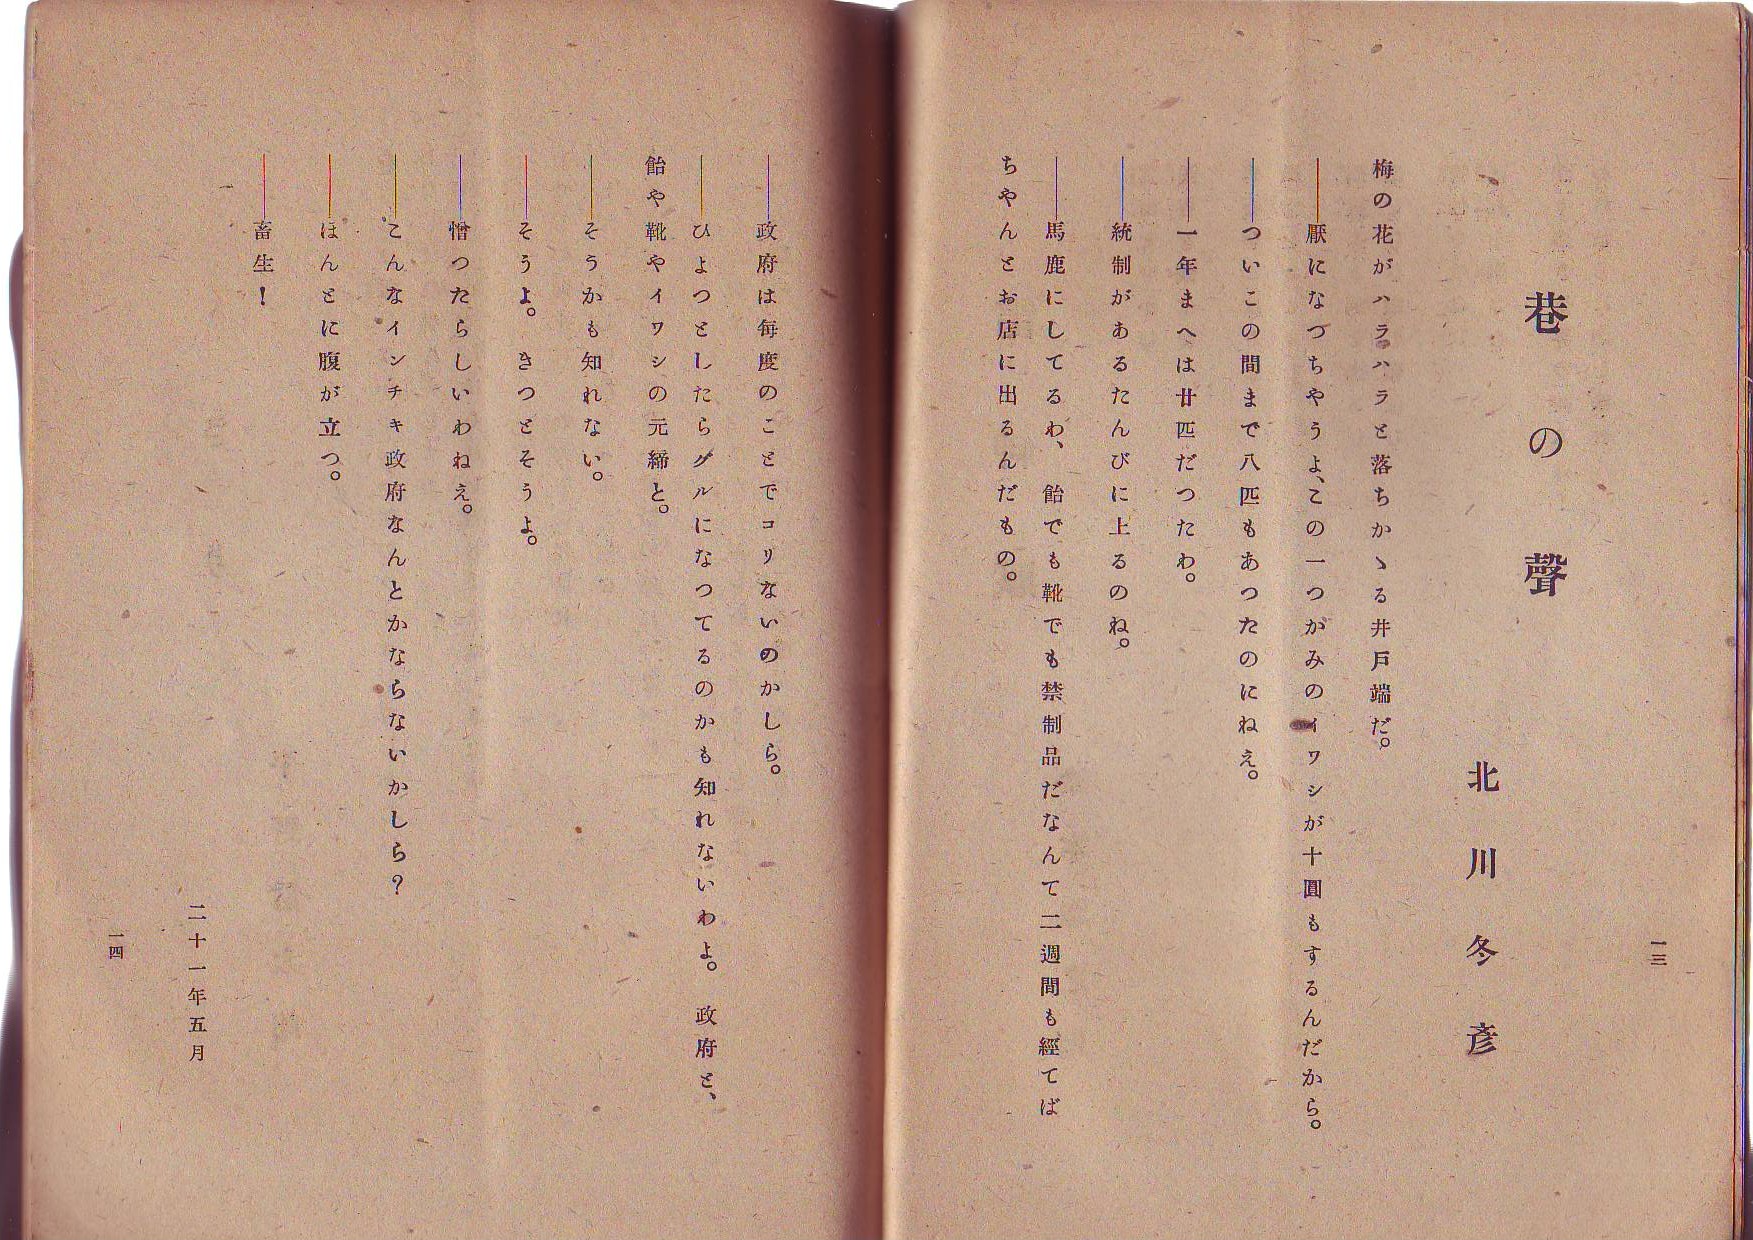 一三
巷の聲
北川冬彥
梅の花がハラハラと落ちかゝる井戸端だ。
――厭になつちやうよ、この一つがみのイワシが十圓もするんだから。
――ついこの間まで八匹もあつたのにねえ。
――一年まへは廿匹だつたわ。
――統制があるたんびに上るのね。
――馬鹿にしてるわ、飴でも靴でも禁制品だなんて二週間も經てば
ちやんとお店に出るんだもの。
――政府は每度のことでコリないのかしら。
――ひよつとしたらグルになつてるのかも知れないわよ。政府と、
飴や靴やイワシの元締と。
――そうかも知れない。
――そうよ。きつとそうよ。
――憎つたらしいわねえ。
――こんなインチキ政府なんとかならないかしら?
――ほんとに腹が立つ。
――畜生!
二十一年五月
一四